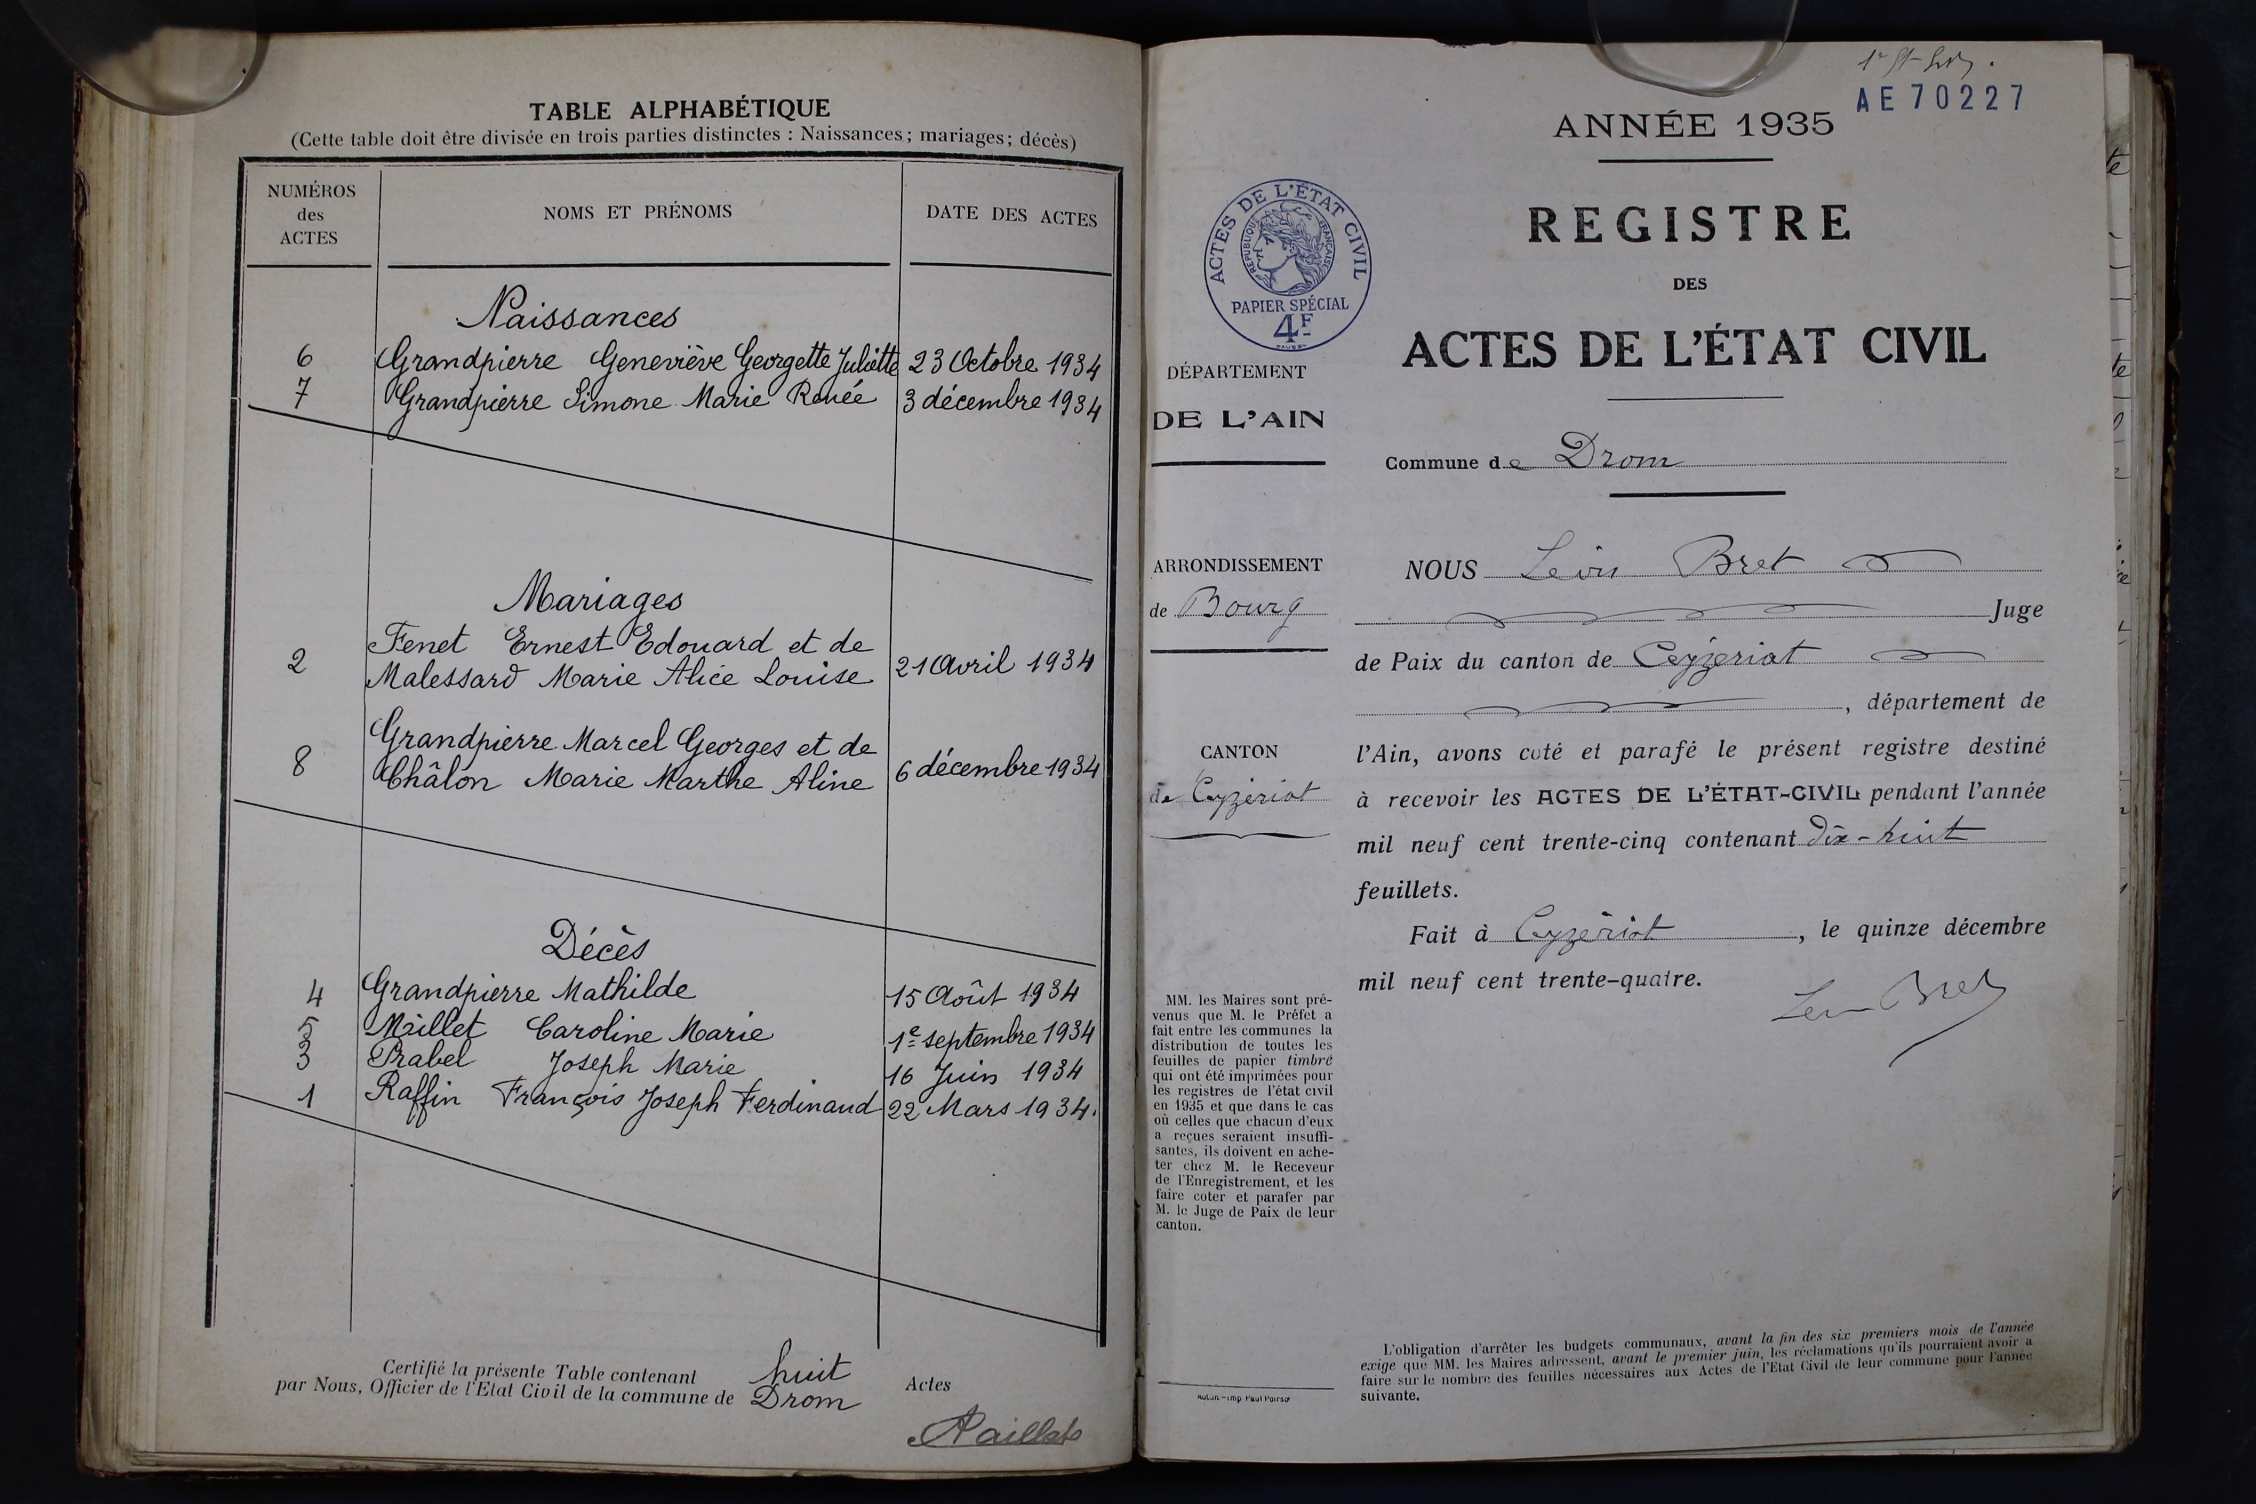 TABLE ALPHABÉTIQUE
(Cette table doit être divisée en trois parties distinctes : Naissances ; mariages ; décès)
NUMÉROS
des
ACTES
NOMS ET PRÉNOMS
DATE DES ACTES
Naissances
6 Grandpierre Geneviève Georgette Juliette 23 Octobre 1934
7 Grandpierre Simone Marie Renée 3 décembre 1934
Mariages
Fenet Ernest Edouard et de
2 Malessard Marie Alice Louise 21 Avril 1934
Grandpierre Marcel Georges et de
8 Châlon Marie Marthe Aline 6 décembre 1934
Décès
4 Grandpierre Mathilde 15 Août 1934
5 Millet Caroline Marie 1e septembre 1934
3 Prabel Joseph Marie 16 Juin 1934
1 Raffin François Joseph Ferdinand 22 Mars 1934.
Certifié la présente Table contenant huit Actes
par Nous, Officier de l'Etat Civil de la commune de Drom
AE 70227
ANNÉE 1935
REGISTRE
DES
ACTES DE L'ÉTAT CIVIL
ACTES DE L'ÉTAT CIVIL
RÉPUBLIQUE FRANÇAISE
PAPIER SPÉCIAL
4F
DÉPARTEMENT
DE L'AIN
ARRONDISSEMENT
de Bourg
CANTON
de Ceyzériat
MM. les Maires sont pré-
venus que M. le Préfet a
fait entre les communes la
distribution de toutes les
feuilles de papier timbré
qui ont été imprimées pour
les registres de l'état civil
en 1935 et que dans le cas
où celles que chacun d'eux
a reçues seraient insuffi-
santes, ils doivent en ache-
ter chez M. le Receveur
de l'Enregistrement, et les
faire coter et parafer par
M. le Juge de Paix de leur
canton.
Commune de Drom
NOUS Léon Bret
Juge
de Paix du canton de Ceyzeriat
, département de
l'Ain, avons coté et parafé le présent registre destiné
à recevoir les ACTES DE L'ÉTAT-CIVIL pendant l'année
mil neuf cent trente-cinq contenant dix-huit
feuillets.
Fait à Ceyzériat, le quinze décembre
mil neuf cent trente-quatre.
Léon Bret
L'obligation d'arrêter les budgets communaux, avant la fin des six premiers mois de l'année
exige que MM. les Maires adressent, avant le premier juin, les réclamations qu'ils pourraient avoir à
faire sur le nombre des feuilles nécessaires aux Actes de l'Etat Civil de leur commune pour l'année
suivante.